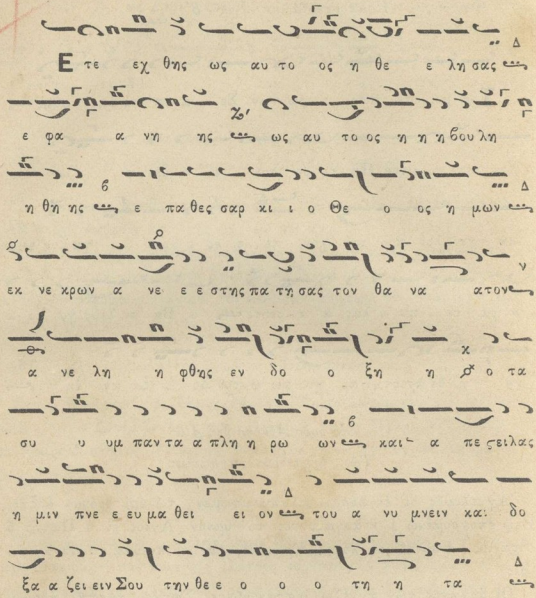 Ε τε εχ θης ως αυ το ος η θε ε λη σας Δ
ε φα α νη ης ως αυ το ος η η η βου λη
η θη ης ε πα θες σαρ κι ι ο Θε ο ος η μων Δ
εκ νε κρων α νε ε ε στης πα τη σας τον θα να ατον
α νε λη η φθης εν δο ο ξη η ο τα
συ υ υμ παν τα α πλη η ρω ων και α πε ςειλας
η μιν πνε ε ευ μα θει ει ον του α νυ μνειν και δο
ξα α ζει ειν Σου την θε ε ο ο ο τη η τα